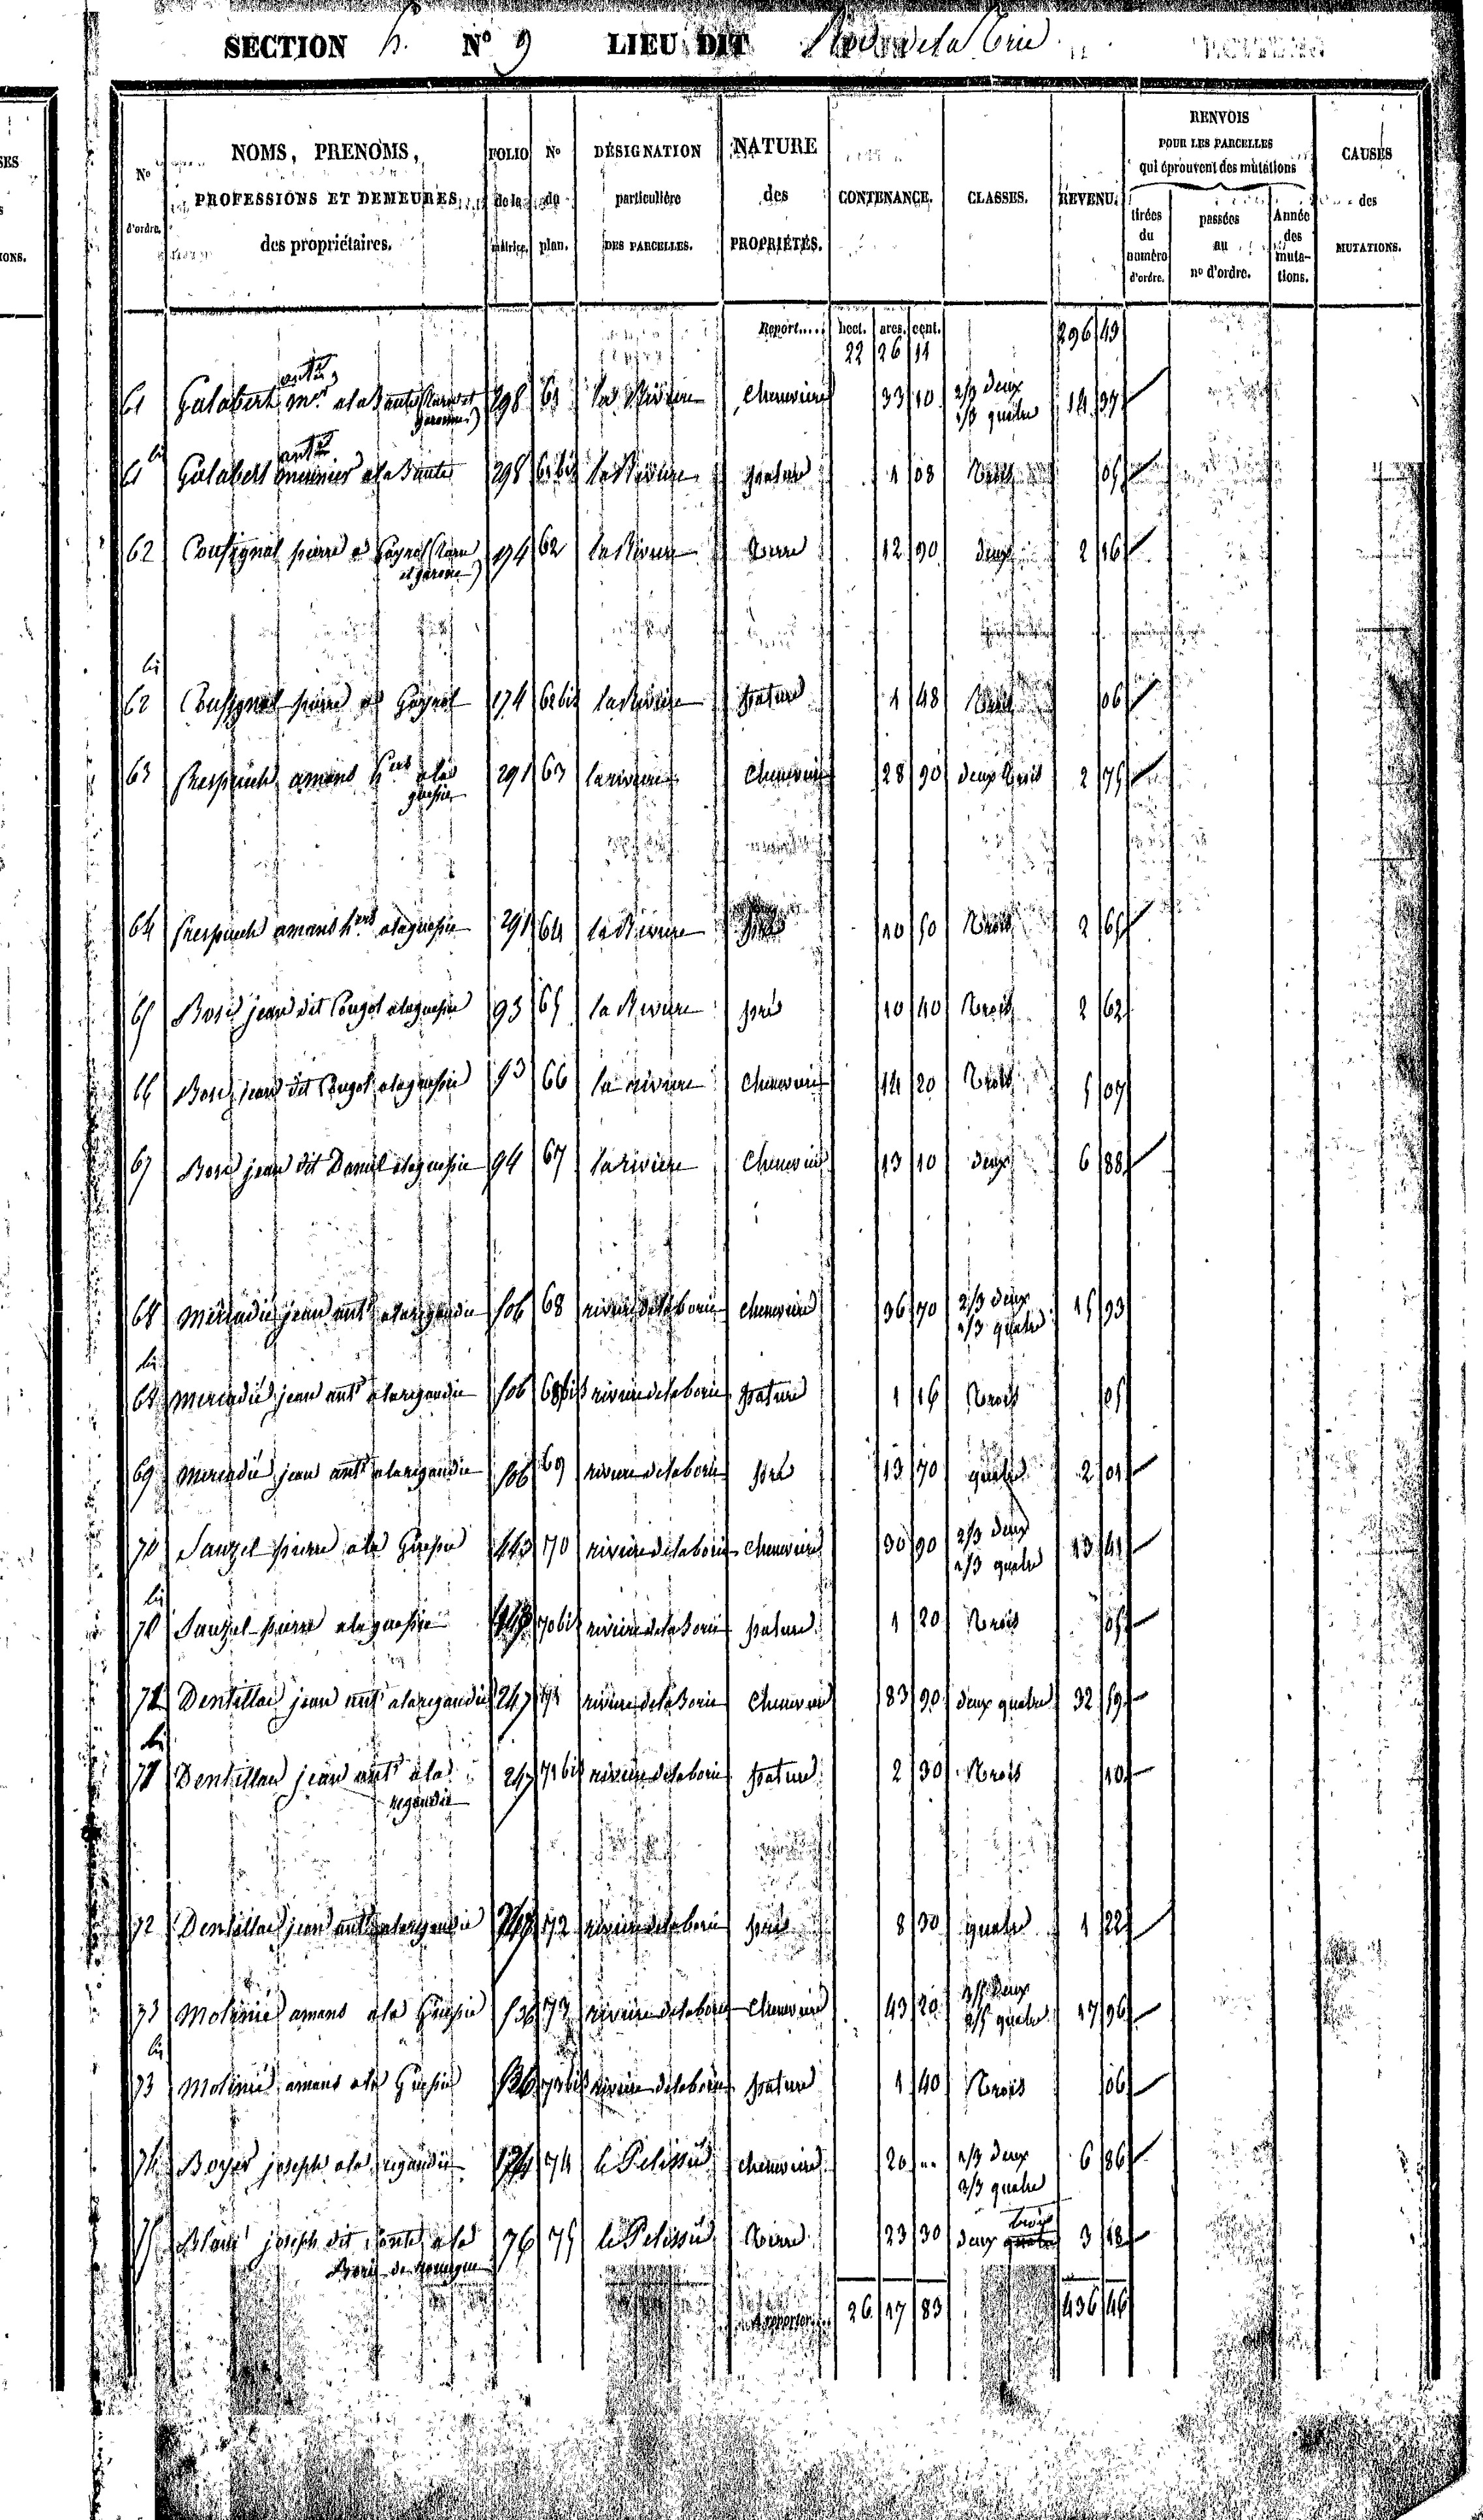 SECTION h. Nº 9 LIEU DIT
Nº d'ordre.
NOMS, PRENOMS, PROFESSIONS ET DEMEURES des propriétaires.
FOLIO de la matrice.
Nº du plan.
DÉSIGNATION particulière DES PARCELLES.
NATURE des PROPRIÉTÉS.
CONTENANCE.
CLASSES.
REVENU.
RENVOIS POUR LES PARCELLES qui éprouvent des mutations
tirées du numéro d'ordre.
passées au nº d'ordre.
Année des mutations.
CAUSES des MUTATIONS.
Report..... hect. ares. cent.
22 26 11 296 43
61 Galabert antne 298 61 la Rivière Cheneviere 33 10 2/3 deux 1/3 quatre 14 37
61 bis Galabert antne meunier 298 61 bis la Rivière pature 1 08 Trois 05
62 pierre (Tarn et garonne) 174 62 la Riviere Terre 12 90 deux 2 16
62 bis pierre 174 62 bis la Rivière pature 1 48 Trois 06
63 amans hers a la guepie 291 63 la riviere Cheneviere 28 90 deux trois 2 75
64 amans hers a laguepie 291 64 la Riviere pré 10 50 Trois 2 65
65 Bosc jean dit Cougot a laguepie 93 65 la Riviere pré 10 40 Trois 2 62
66 Bosc jean dit Cougot a laguepie 93 66 la riviere Cheneviere 14 20 Trois 5 07
67 Bosc jean dit Daniel a laguepie 94 67 la riviere Cheneviere 13 10 deux 6 88
68 Mercadié jean ant a laregaudie 506 68 riviere de la borie cheneviere 36 70 2/3 deux 1/3 quatre 15 93
68 bis Mercadié jean ant a laregaudie 506 68 bis riviere de la borie pature 1 16 Trois 05
69 Mercadié jean ant a laregaudie 506 69 riviere de la borie pré 13 70 quatre 2 01
70 Sauzel pierre a la Guepie 443 70 riviere de la borie cheneviere 30 90 2/3 deux 1/3 quatre 13 41
70 bis Sauzel pierre a laguepie 443 70 bis riviere de la Borie pature 1 20 Trois 05
71 Dentillac jean ant a laregaudie 247 71 riviere de la Borie Cheneviere 83 90 deux quatre 32 59
71 bis Dentillac jean ant a la regaudie 247 71 bis riviere de la borie pature 2 30 Trois 10
72 Dentillac jean ant a laregaudie 247 72 riviere de la borie pré 8 30 quatre 1 22
73 Molinié amans a la Guepie 536 73 riviere de la borie Cheneviere 43 20 3/5 deux 2/5 quatre 17 96
73 bis Molinié amans a la Guepie 536 73 bis riviere de la borie pature 1 40 Trois 06
74 Boyer joseph a la regaudie 124 74 le Pelissié cheneviere 20 " 1/3 deux 2/3 quatre 6 86
75 joseph dit a la Borie de 76 75 le Pelissié Terre 23 30 deux quatre trois 3 18
A reporter 26 17 83 436 46